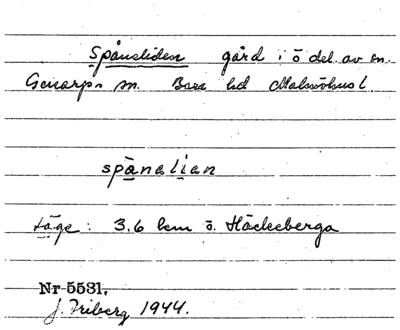 Spånsliden gård i ö del. av sn.
Genarps sn. Bara hd Malmöhus l.
spånalian
Läge: 3.6 km ö. Häckeberga
Nr 5531.
J. Friberg 1944.